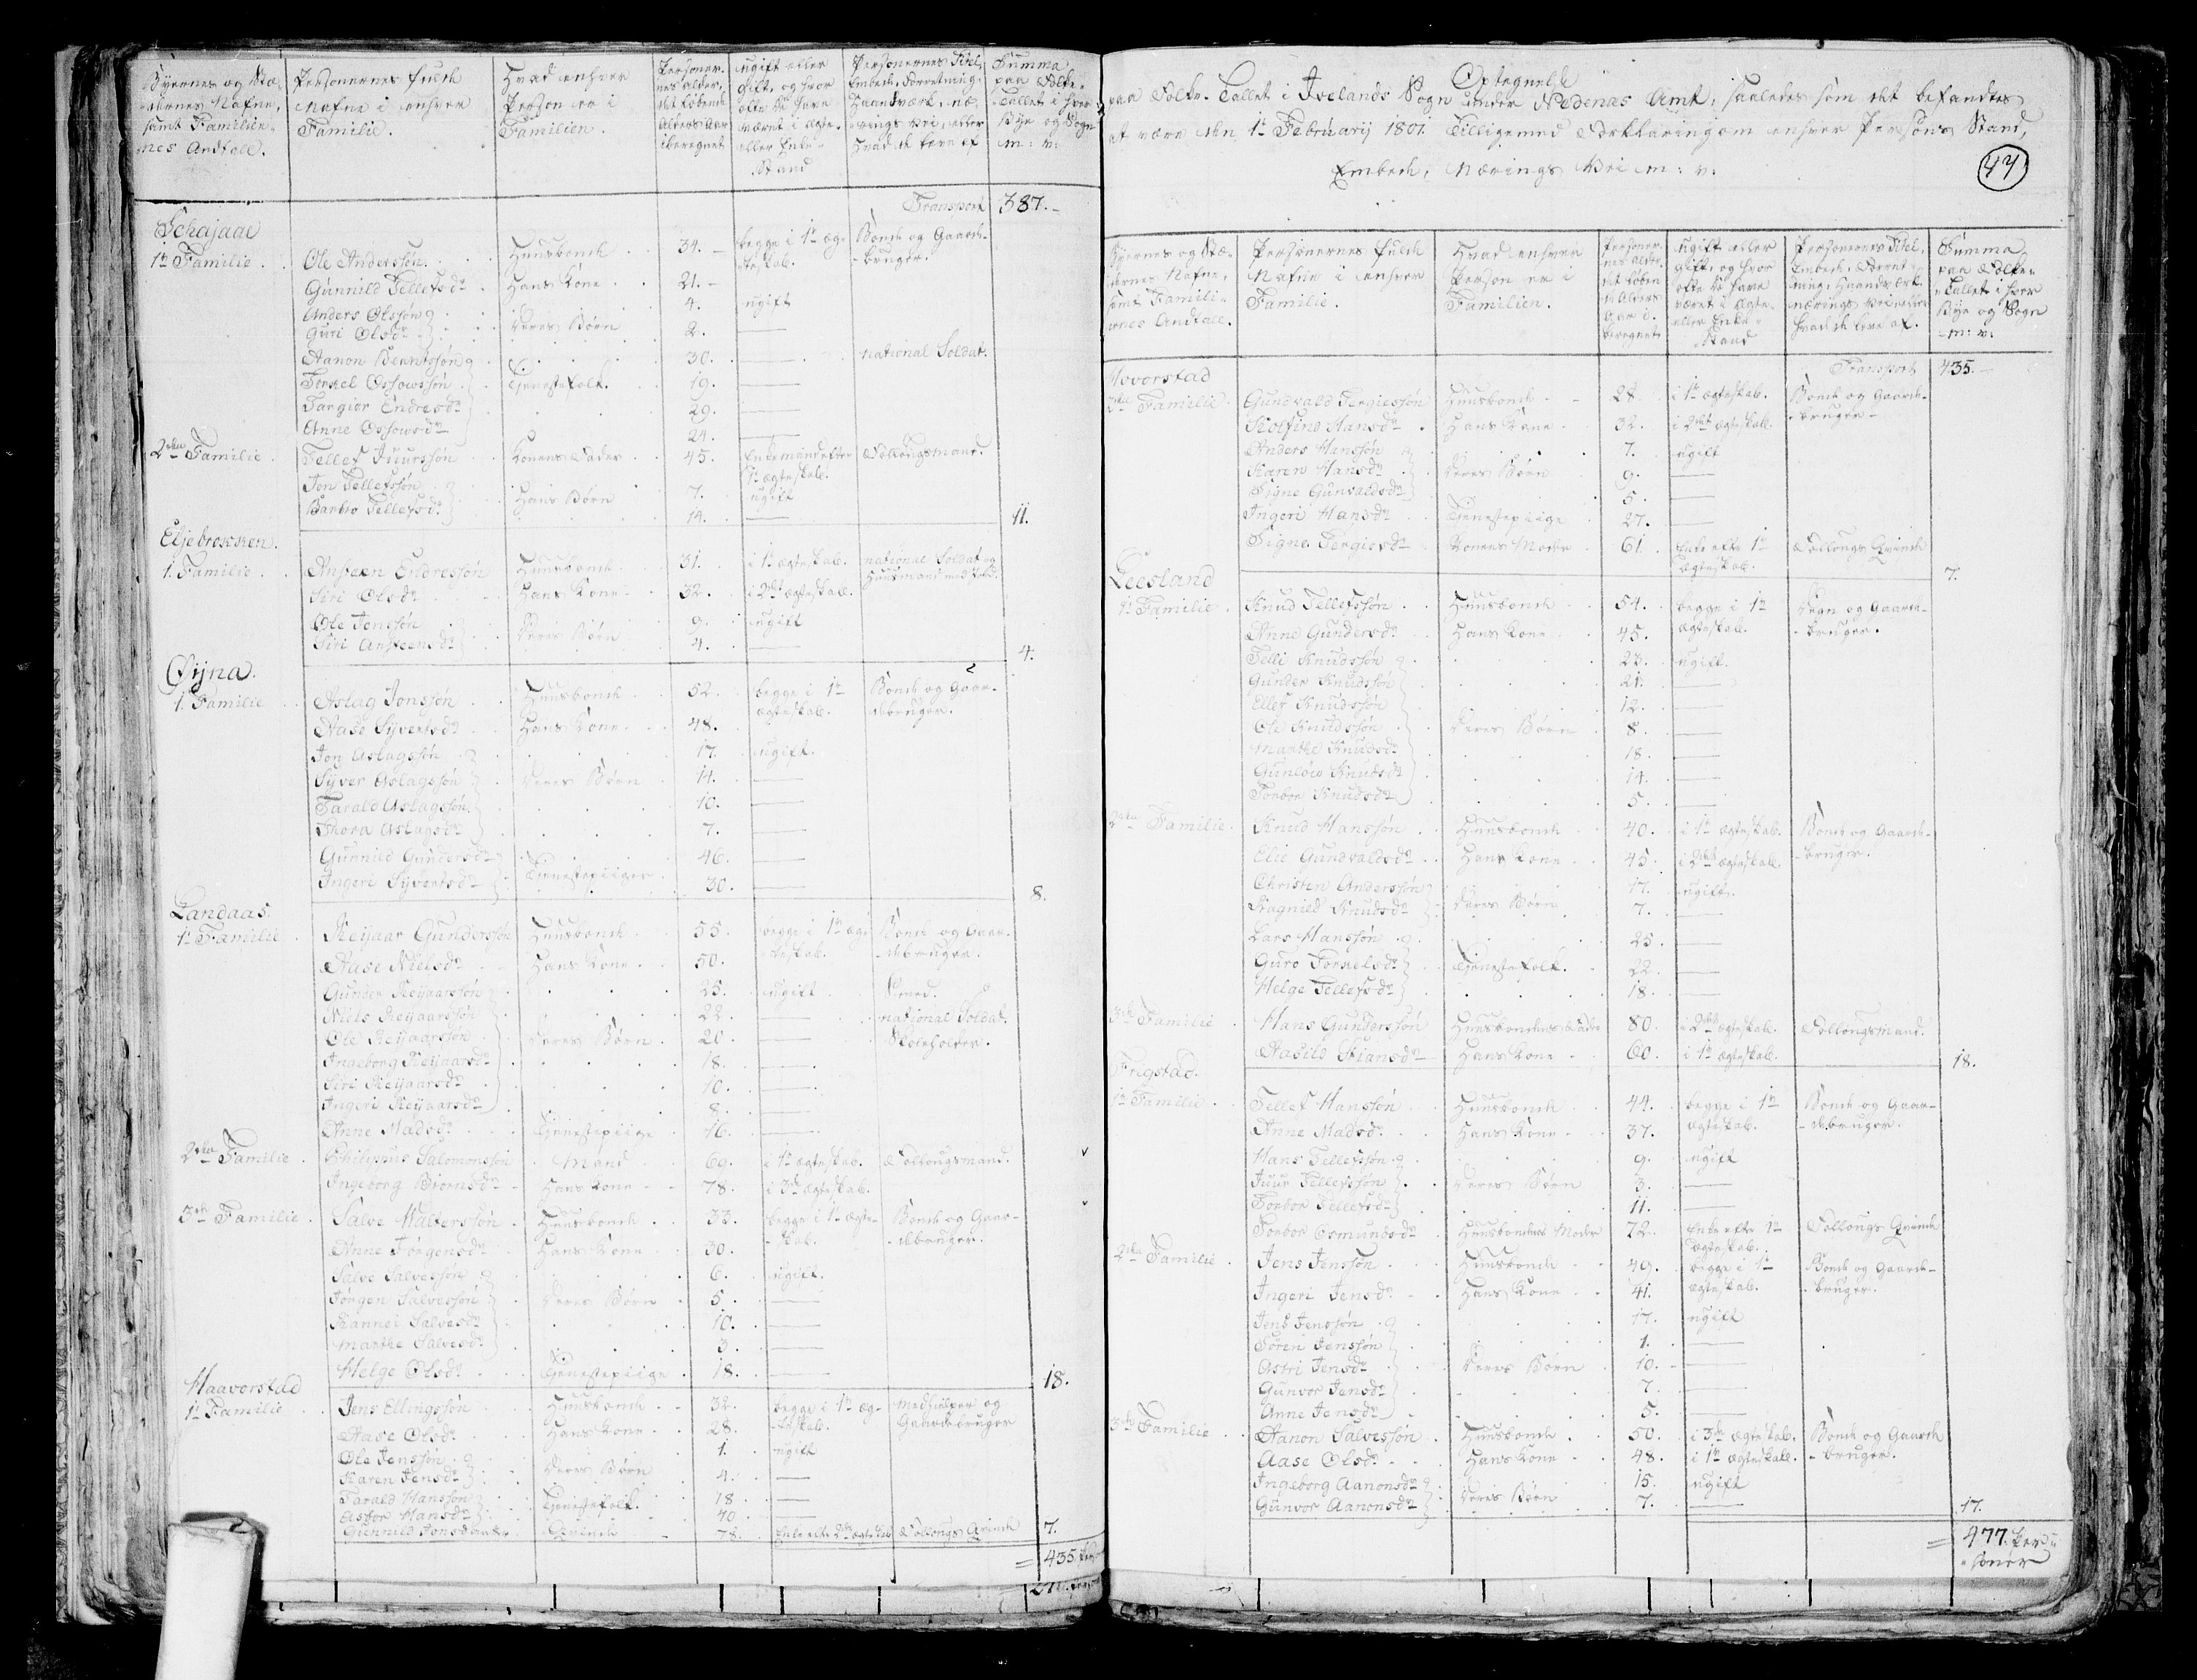 Byernes og Stæ-
dernes Nafne,
samt Familier-
nes Andtall.
Personernes fulde
Nafne i enhver
Familie.
Hvad enhver
Person er i
Familien.
Personer-
nes alder,
det løbende
Alders Aar
iberegnet
ugift eller
gift, og hvor
ofte de have
været i ægte-
eller Enke-
Stand
Personernes Titel,
Embede, Forretning,
Haandværk, næ-
rings Vei, eller
hvad de leve af
Summa
paa Folke-
Tallet i hver
Bye og Sogn
m: v:
Transport 387.
Schajaae
1te Familie . Ole Anderssøn. Huusbonde 34. begge i 1te æg-teskab. Bonde og Gaard-bruger.
Gunnild Tellefsdr Hans Kone 21.
Anders Olssøn 4. ugift
Guri Olsdr Deres Børn 2. —
Aanon Berntssøn 30. — national Soldat.
Torkel Ossowssøn Tjenestefolk. 19. —
Targier Endresdr 29. —
Anne Ossowsdr 24. —
2den Familie . Tellef Juurssøn Konens Fader 45. Enkemand efter 1te ægteskab. Follougsmand.
Jon Tellefssøn Hans Børn 7. ugift
Barbro Tellefsdr 14. — 11.
Eljebrekken.
1. Familie . Ansteen Endressøn Huusbonde 31. i 1te ægteskab. national Soldat og Huusmand med Jord.
Siri Olsdr Hans Kone 32. i 2det ægteskab.
Ole Jonssøn Deres Børn 9. ugift
Siri Ansteensdr 4. — 4.
Øijna.
1. Familie Aslag Jonssøn Huusbonde 52. begge i 1te ægteskab. Bonde og Gaar-debruger.
Aase Syvertsdr Hans Kone 48.
Jon Aslagssøn 17. ugift.
Syver Aslagssøn Deres Børn 14. —
Tarald Aslagssøn. 10. —
Thora Aslagsdr 7. —
Gunnild Gundersdr Tjenestepiiger 46. —
Ingeri Syvertsdr 30. — 8.
Landaas.
1te Familie . Reijaar Gunderssøn Huusbonde 55. begge i 1te æg-teskab. Bonde og Gaar-debruger.
Aase Nielsdr Hans Kone 50.
Gunder Reijaarssøn 25. ugift Smed.
Niels Reijaarssøn 22. — national Soldat.
Ole Reijaarssøn Deres Børn 20. — Skoleholder.
Ingeborg Reijaarsdr 18. —
Siri Reijaarsdr 10. —
Ingeri Reijaarsdr 8. —
Anne Madsdr Tjenestepiige 16. —
2den Familie . Salomonssøn Mand 69. i 1te ægteskab. Follougsmand.
Ingeborg Biørnsdr Hans Kone 78. i 3die ægteskab.
3die Familie . Salve Walterssøn Huusbonde 33. begge i 1te ægte-skab. Bonde og Gaar-debruger.
Anne Jørgensdr Hans Kone 30.
Salve Salvessøn 6. ugift.
Jørgen Salvessøn Deres Børn 5. —
Rannei Salvesdr 10. —
Marthe Salvesdr 3. —
Helge Olsdr Tjenestepiige 18. — 18.
Haavorstad
1te Familie Jens Ellingssøn Huusbonde 32. begge i 1te æg-teskab. Medhielper og Gaardebruger
Aase Olsdr Hans Kone 28.
Ole Jenssøn 1. ugift
Karen Jensdr Deres Børn 4. —
Tarald Hanssøn Tjenestefolk. 18 —
Astor Hansdr 40 —
Gunnild Jonsdatter Qvinde 78. Enke efter 2det ægteskab Follougs Qvinde 7.
= 435.
Optegnelse
paa Folke-Tallet i Ivelands Sogn under Nedenæs Amt, saaledes som det befandtes
at være den 1te Februarij 1801. Tilligemed Forklaring om enhver Persons Stand,
Embede, Nærings Vei m: v:
47
Byernes og Stæ-
dernes Nafne,
samt Famili-
ernes Andtall.
Personernes fulde
Nafne i enhver
Familie.
Hvad enhver
Person er i
Familien.
Personer-
nes alder,
det løben-
de Alders
Aar i-
beregnet
ugift eller
gift, og hvor
ofte de have
været i Ægte-
eller Enke-
Stand
Personernes Titel,
Embede, Forret-
ning, Haandværk,
nærings Vei, eller
hvad de leve af.
Summa
paa Folke-
Tallet i hver
Bye og Sogn
m: v:
Transport 435.
Hovorstad
2den Familie. Gundvald Tergiessøn Huusbonde 28. i 1te ægteskab. Bonde og Gaard-bruger
Kolfind Hansdr Hans Kone 32. i 2det ægteskab.
Anders Hanssøn 7. ugift
Karen Hansdr Deres Børn 9. —
Signe Gunvaldsdr 5. —
Ingeri Hansdr Tjenestepiige 27. —
Signe Tergiesdr Konens Moder 61. Enke efter 1te Ægteskab. Follougs Qvinde 7.
Leesland
1te Familie . Knud Tellefssøn Huusbonde 54. begge i 1te ægteskab. Degn og Gaard-bruger.
Anne Gundersdr Hans Kone 45.
Telli Knudssøn 23. ugift.
Gunder Knudssøn 21. —
Ellef Knudssøn 12. —
Ole Knudssøn Deres Børn 8. —
Marthe Knudsdr 18. —
Gunlow Knudsdr 14. —
Torbor Knudsdr 5. —
2den Familie. Knud Hanssøn Huusbonde 40. i 1te ægteskab. Bonde og Gaard-bruger.
Elie Gundvaldsdr Hans Kone 45. i 2det ægteskab.
Christen Anderssøn 17. ugift.
Ragnild Knudsdr Deres Børn 7. —
Lars Hanssøn 25. —
Guro Torkelsdr Tjenestefolk. 22. —
Helge Tellefsdr 18. —
3die Familie . Hans Gunderssøn Huusbondens Fader 80. i 2det ægteskab. Follougsmand.
Aasild Stiansdr Hans Kone 60. i 1te ægteskab. 18.
Frigstad.
1te Familie . Tellef Hanssøn Huusbonde 44. begge i 1te ægteskab. Bonde og Gaar-debruger.
Anne Madsdr Hans Kone 37.
Hans Tellefssøn 9. ugift
Juur Tellefssøn Deres Børn 3. —
Torbor Tellefsdr 11. —
Torbor Osmundsdr Huusbondens Moder 72. Enke efter 1te Ægteskab. Follougs Qvinde
2den Familie . Jens Jenssøn Huusbonde 49. begge i 1te ægteskab. Bonde og Gaard-bruger.
Ingeri Jensdr Hans Kone 41.
Jens Jenssøn 17. ugift
Søren Jenssøn 1. —
Astri Jensdr Deres Børn 10. —
Gunvor Jensdr 7. —
Anne Jensdr 5. —
3die Familie . Aanon Salvessøn Huusbonde 50. i 3die ægteskab. Bonde og Gaard-bruger.
Aase Olsdr Hans Kone 48. i 1te ægteskab.
Ingeborg Aanonsdr Deres Børn 15. ugift
Gunvor Aanonsdr 7. — 17.
= 477. Per-
soner